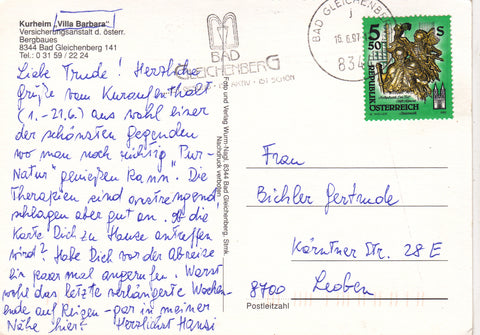 Kurheim „Villa Barbara"
Versicherungsanstalt d. österr.
Bergbaues
8344 Bad Gleichenberg 141
Tel.: 0 31 59 / 22 24
Liebe Trude! Herzliche
Grüße vom Kuraufenthalt
(1.-21.6.) aus wohl einer
der schönsten Gegenden
wo man noch richtig "Pur-
Natur" genießen kann. Die
Therapien sind anstrengend
schlagen aber gut an. Ob die
Karte Dich zu Hause antreffen
wird? Habe Dich vor der Abreise
ein paar mal angerufen. Warst
wohl das letzte verlängerte Wochen-
ende auf Reisen - gar in meiner
Nähe hier? Herzlichst Hansi
Foto und Verlag Wurm-Nagl, 8344 Bad Gleichenberg, Stmk.
Nachdruck verboten
BAD
GLEICHENBERG
IST SCHÖN
BAD GLEICHENBERG
15.6.97
834
5 50
S
REPUBLIK
ÖSTERREICH
Frau
Bichler Gertrude
Kärntner Str. 28 E
8700 Leoben
Postleitzahl